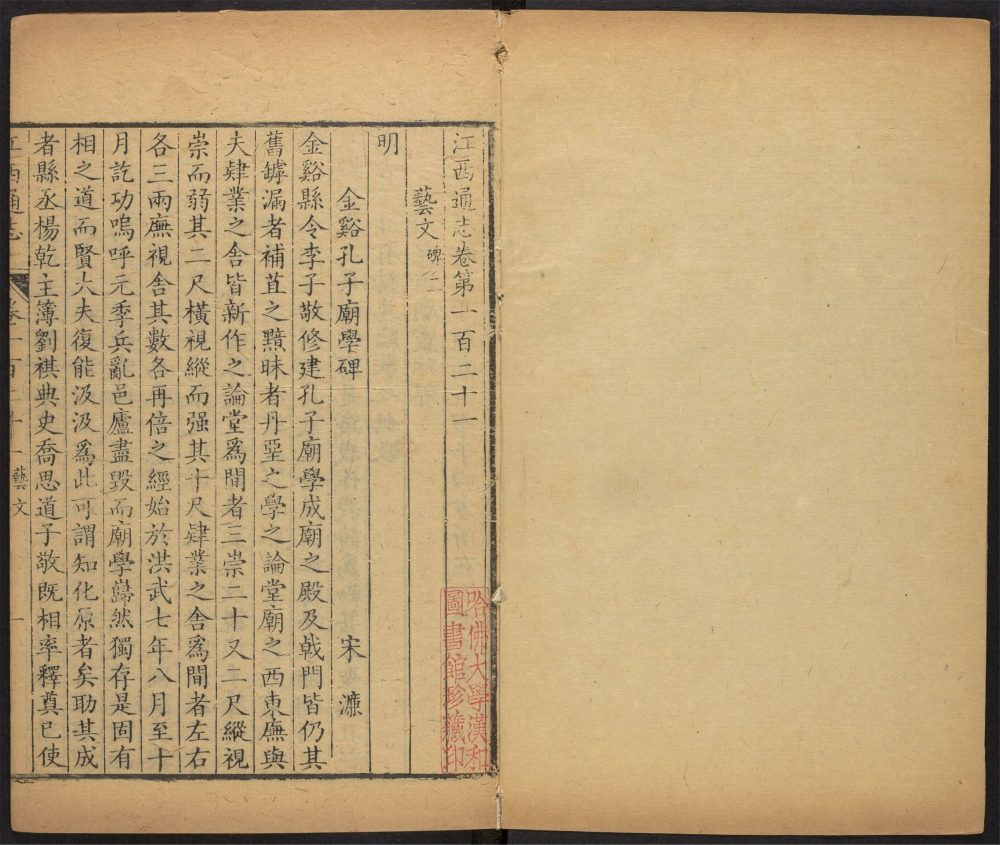 江西通志卷第一百二十一
藝文 碑二
明
金谿孔子廟學碑 宋濂
金谿縣令李子敬修建孔子廟學成廟之殿及戟門皆仍其
舊罅漏者補苴之黯昧者丹堊之學之論堂廟之西東廡與
夫肄業之舍皆新作之論堂爲間者三崇二十又二尺縱視
崇而弱其二尺橫視縱而强其十尺肄業之舍爲間者左右
各三兩廡視舍其數各再倍之經始於洪武七年八月至十
月訖功嗚呼元季兵亂邑廬盡毀而廟學巋然獨存是固有
相之道而賢大夫復能汲汲爲此可謂知化原者矣助其成
者縣丞楊乾主簿劉祺典史喬思道子敬既相率釋奠已使
江西通志 卷一百二十一 藝文 一
哈佛大學漢和
圖書館珍藏印